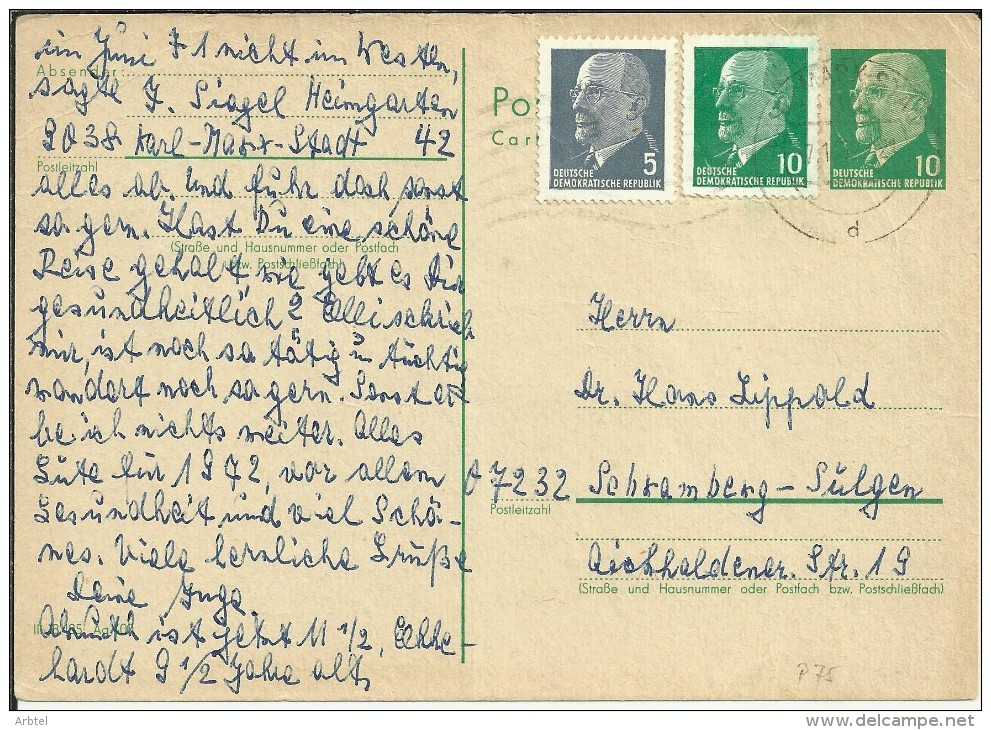 im Juni 71 nicht im Westen,
Absender:
sagte J. Siegel Heimgarten
9038 Karl-Marx-Stadt 42
Postleitzahl
alles ab. Und fuhr doch sonst
so gern. Hast Du eine schöne
(Straße und Hausnummer oder Postfach
bzw. Postschließfach)
Reise gehabt, wie geht es Dir
gesundheitlich? Elli schrieb
mir, ist noch so tätig u. tüchtig
wandert noch so gern. Sonst
be ich nichts weiter. Alles
Gute für 1972, vor allem
Gesundheit und viel Schö-
nes. Viele herzliche Grüße
Deine Inge.
ist jetzt 11 1/2, Ekke-
hardt 9 1/2 Jahre alt,
Po
Cart
5
DEUTSCHE
DEMOKRATISCHE REPUBLIK
10
DEUTSCHE
DEMOKRATISCHE REPUBLIK
10
DEUTSCHE
DEMOKRATISCHE REPUBLIK
d
Herrn
Dr. Hans Lippold
7232 Schramberg-Sulgen
Postleitzahl
Aichhaldener. Str. 19
(Straße und Hausnummer oder Postfach bzw. Postschließfach)
P75
Arbtel
www.delcampe.net